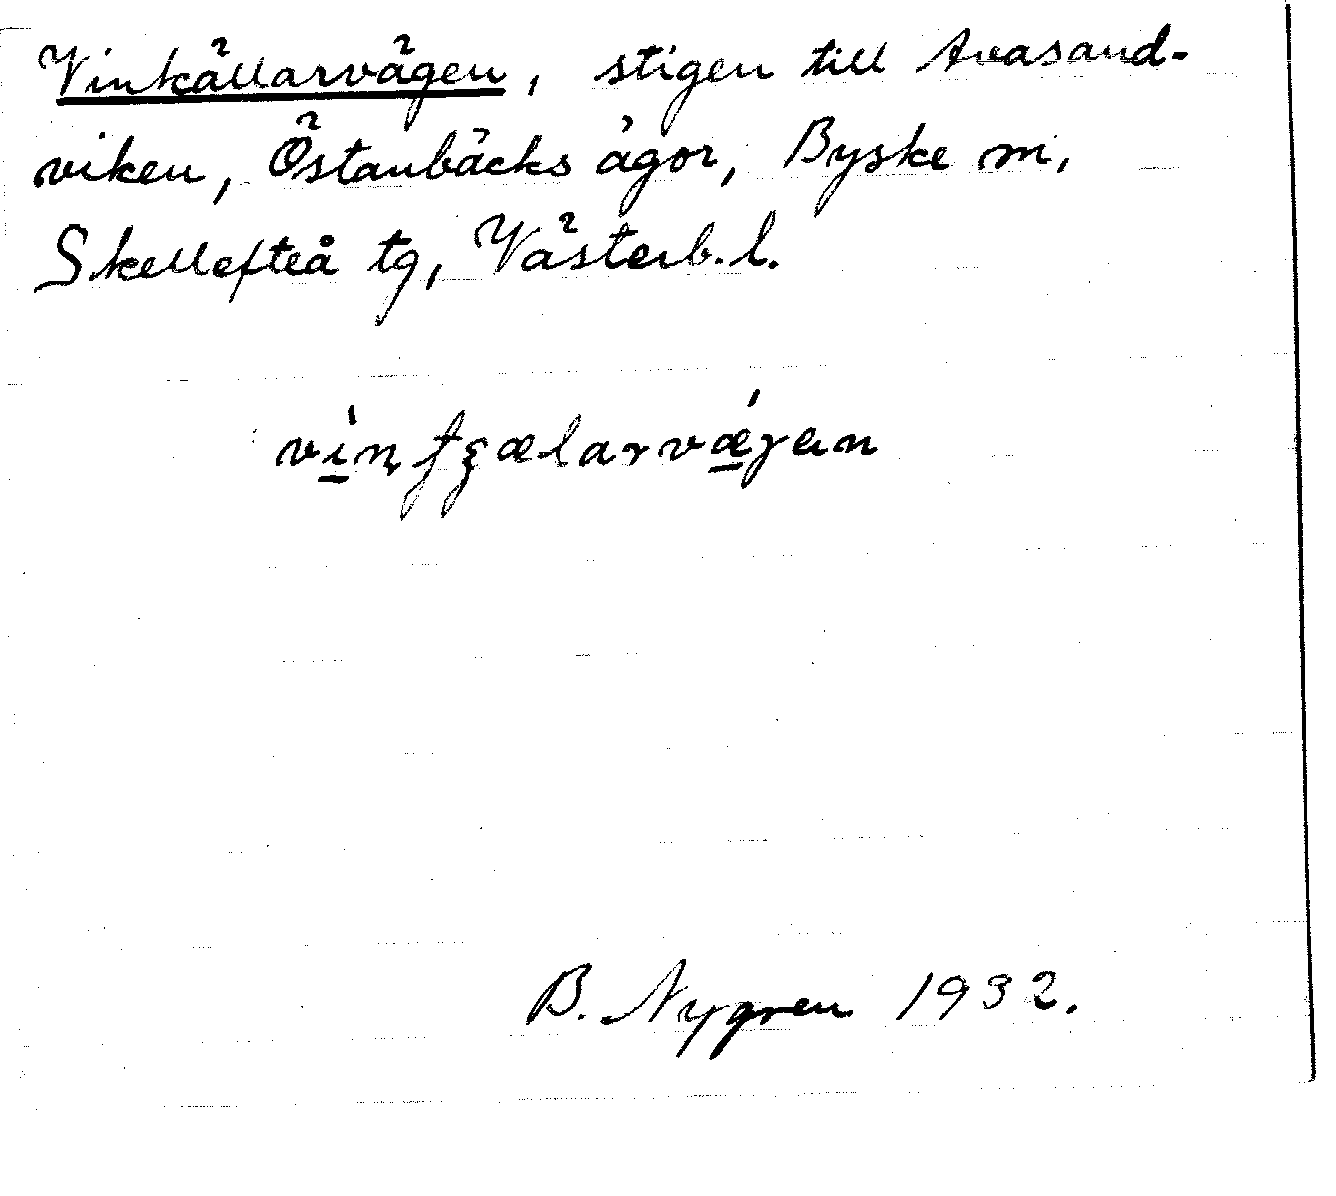 Vinkällarvägen, stigen till Avasand-
viken, Östanbäcks ägor, Byske sn,
Skellefteå tg, Västerb. l.
B. Nygren 1932.